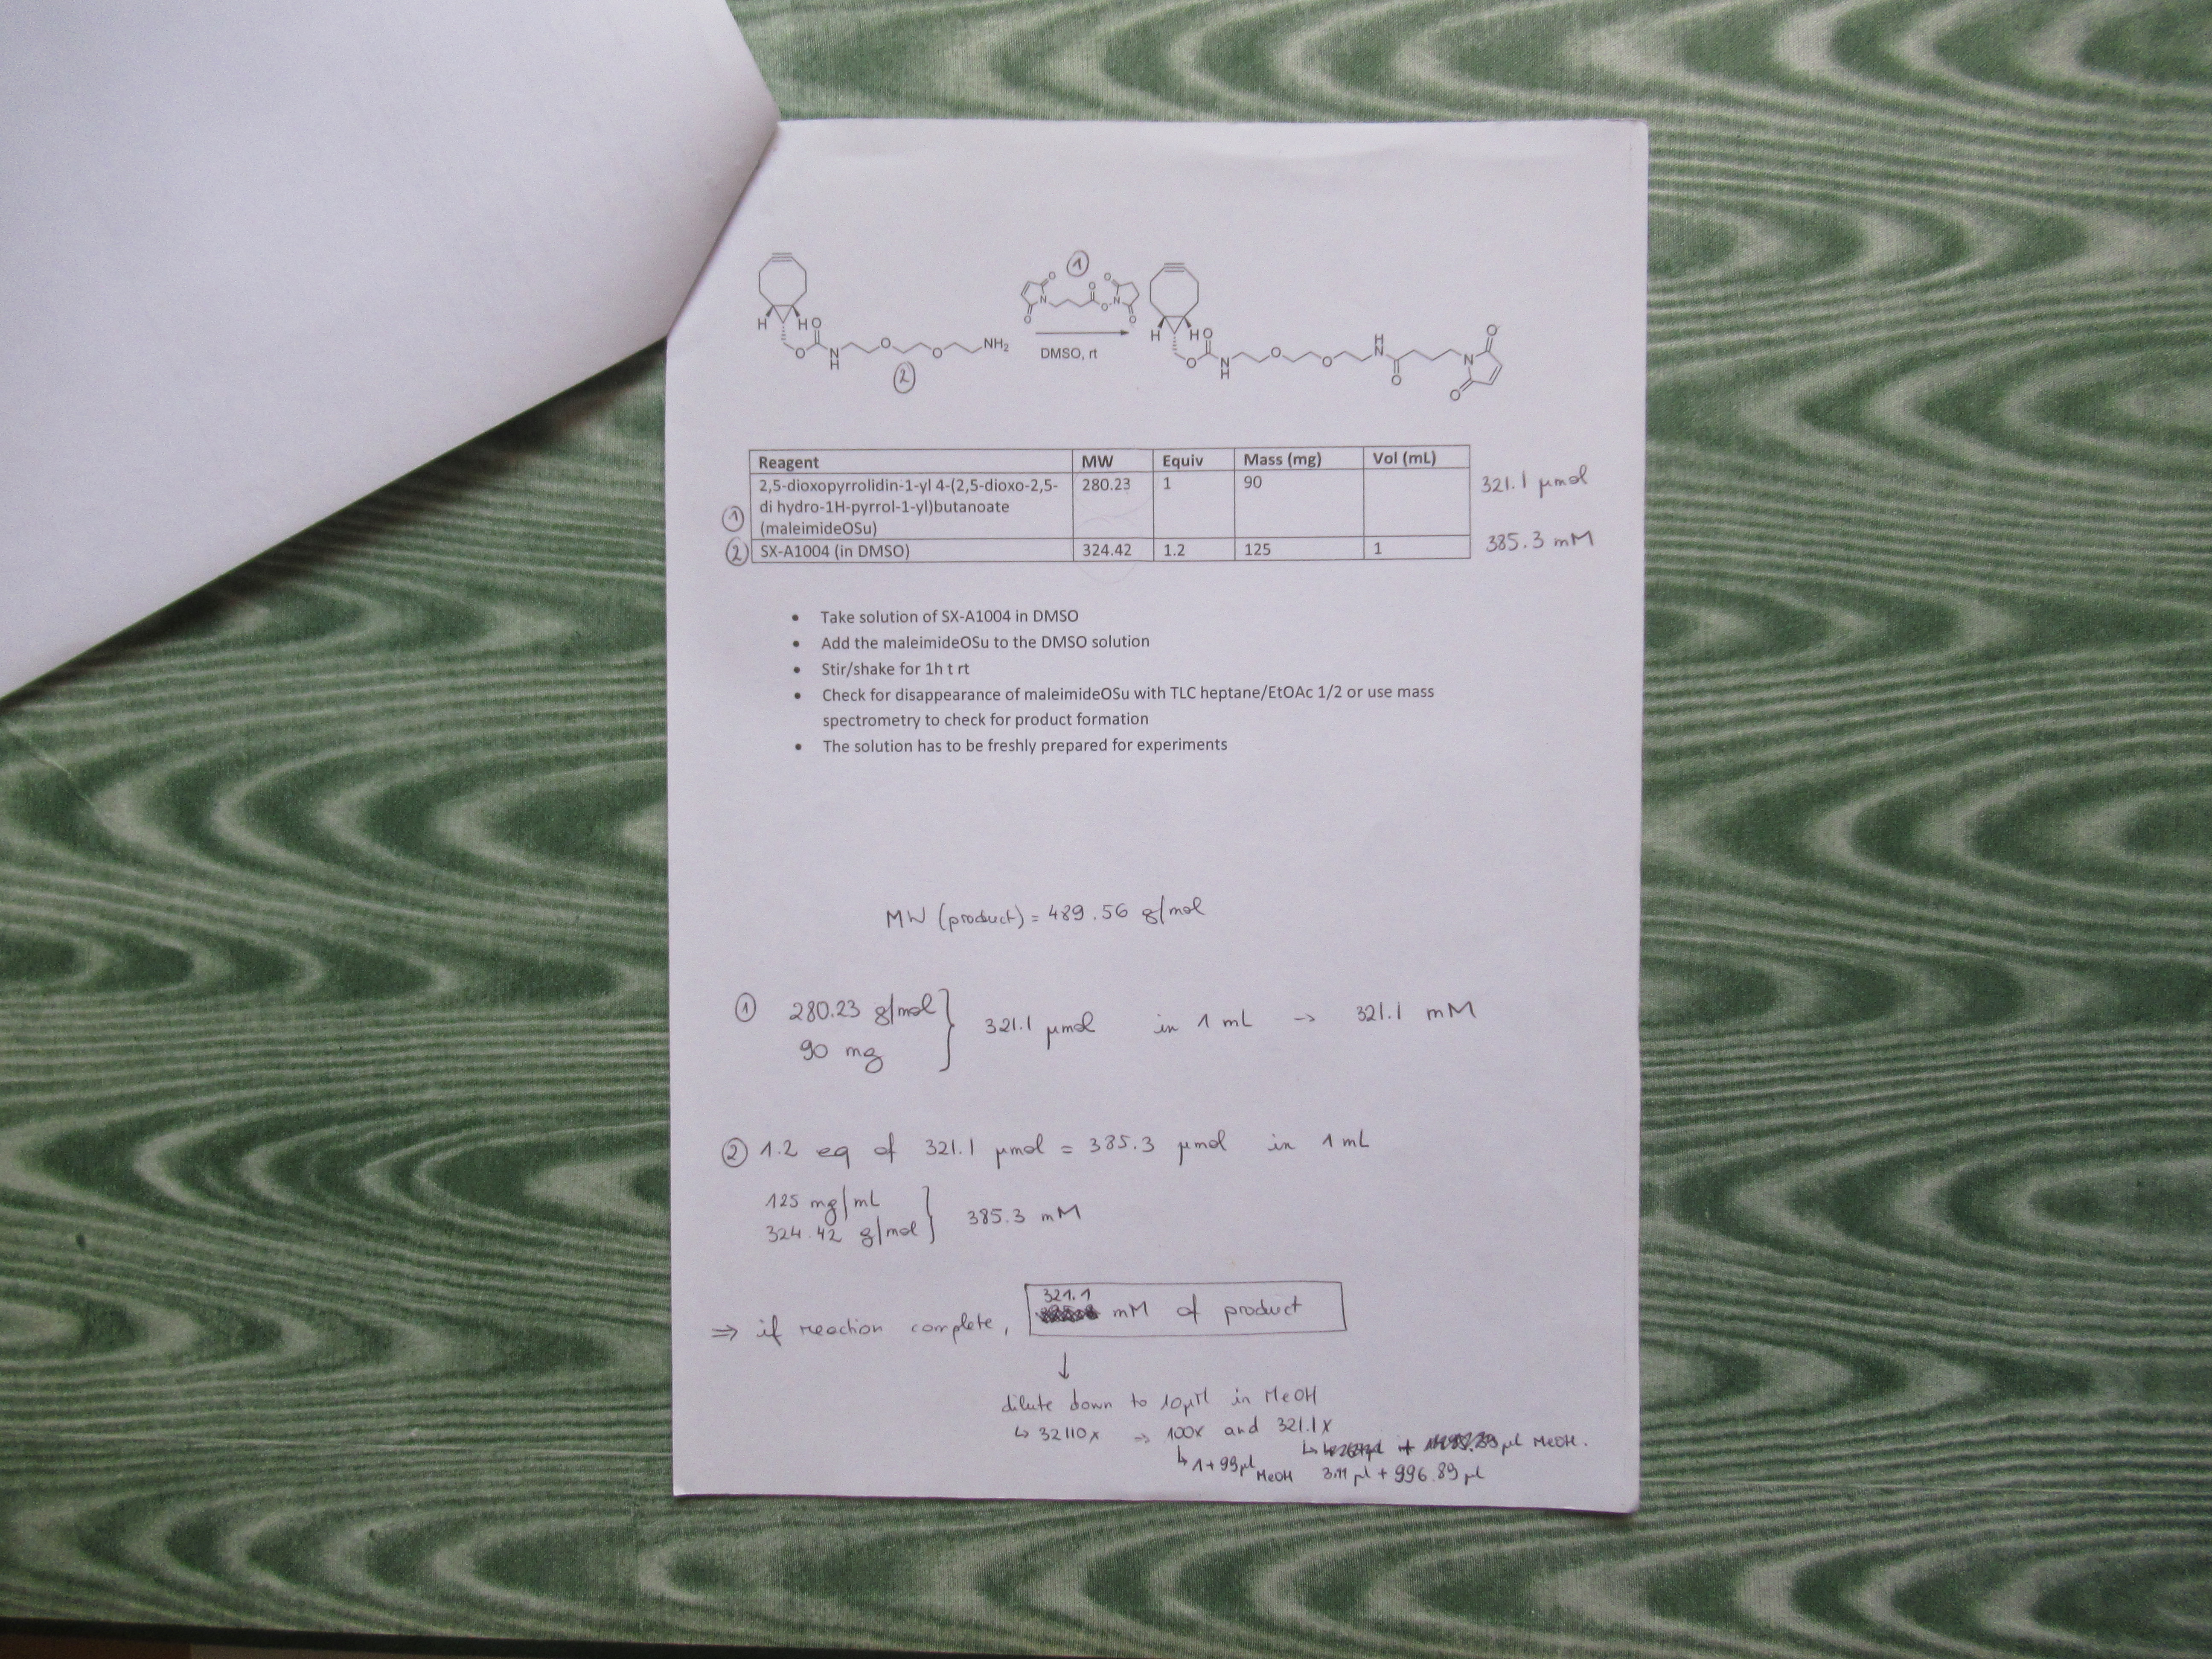 ①
H H O
O N H O O NH₂
②
O N O O O N O O
DMSO, rt
H H O
O N H O O H N O N O O
Reagent MW Equiv Mass (mg) Vol (mL)
2,5-dioxopyrrolidin-1-yl 4-(2,5-dioxo-2,5- 280.23 1 90 321.1 µmol
di hydro-1H-pyrrol-1-yl)butanoate
① (maleimideOSu)
② SX-A1004 (in DMSO) 324.42 1.2 125 1 385.3 mM
• Take solution of SX-A1004 in DMSO
• Add the maleimideOSu to the DMSO solution
• Stir/shake for 1h t rt
• Check for disappearance of maleimideOSu with TLC heptane/EtOAc 1/2 or use mass
spectrometry to check for product formation
• The solution has to be freshly prepared for experiments
MW (product) = 489.56 g/mol
① 280.23 g/mol
90 mg } 321.1 µmol in 1 mL → 321.1 mM
② 1.2 eq of 321.1 µmol = 385.3 µmol in 1 mL
125 mg/mL
324.42 g/mol } 385.3 mM
⇒ if reaction complete, 321.1 mM of product
↓
dilute down to 10µM in MeOH
↳ 32110x ⇒ 100x and 321.1x
↳ 1+99µl MeOH ↳ µl MeOH.
3.11 µl + 996.89 µl